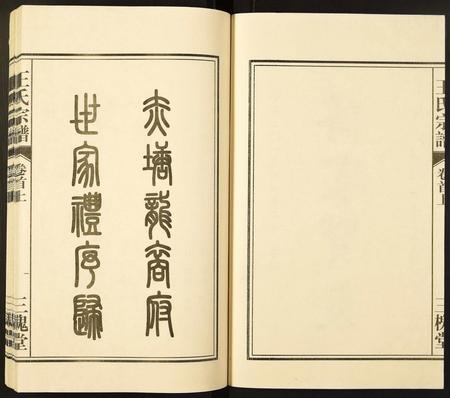 王氏宗譜 卷首上 三槐堂
塘龍府
世家禮序歸
王氏宗譜 卷首上 一 三槐堂